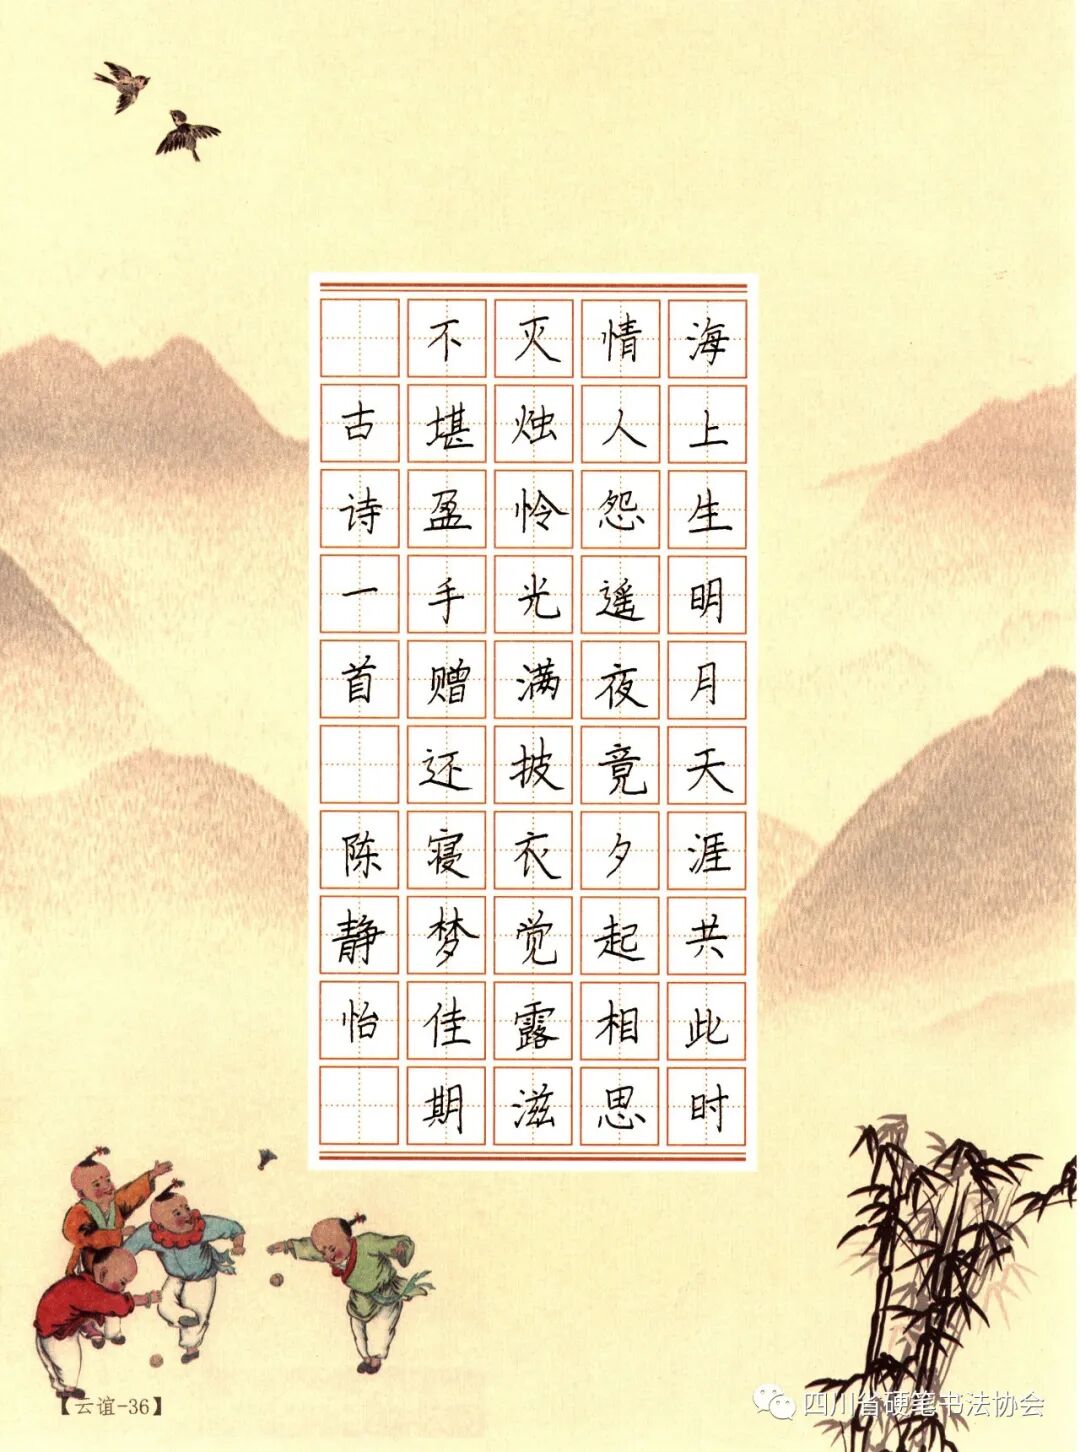 海上生明月天涯共此时
情人怨遥夜竟夕起相思
灭烛怜光满披衣觉露滋
不堪盈手赠还寝梦佳期
古诗一首 陈静怡
【云谊-36】
四川省硬笔书法协会